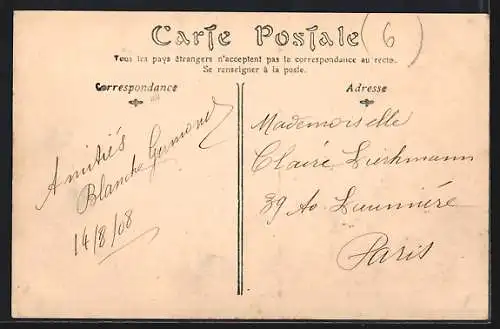 Carte Postale
6
Tous les pays étrangers n'acceptent pas la correspondance au recto.
Se renseigner à la poste.
Correspondance
Adresse
Amitiés
Blanche
14/8/08
Mademoiselle
Claire
39 Av.
Paris